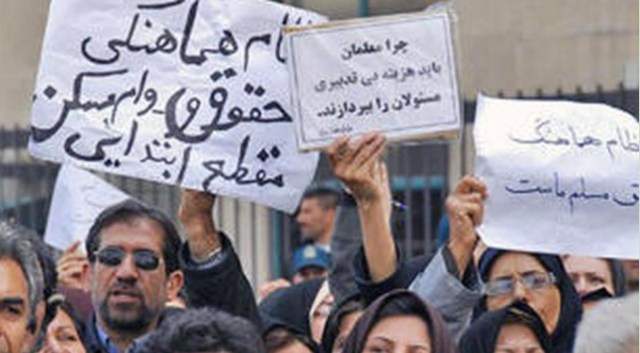 نظام هماهنگی
حقوقی و وام مسکن
مقطع ابتدایی
چرا معلمان
باید هزینه بی تدبیری
مسئولان را بپردازند..
نظام هماهنگ
مسلم ماست